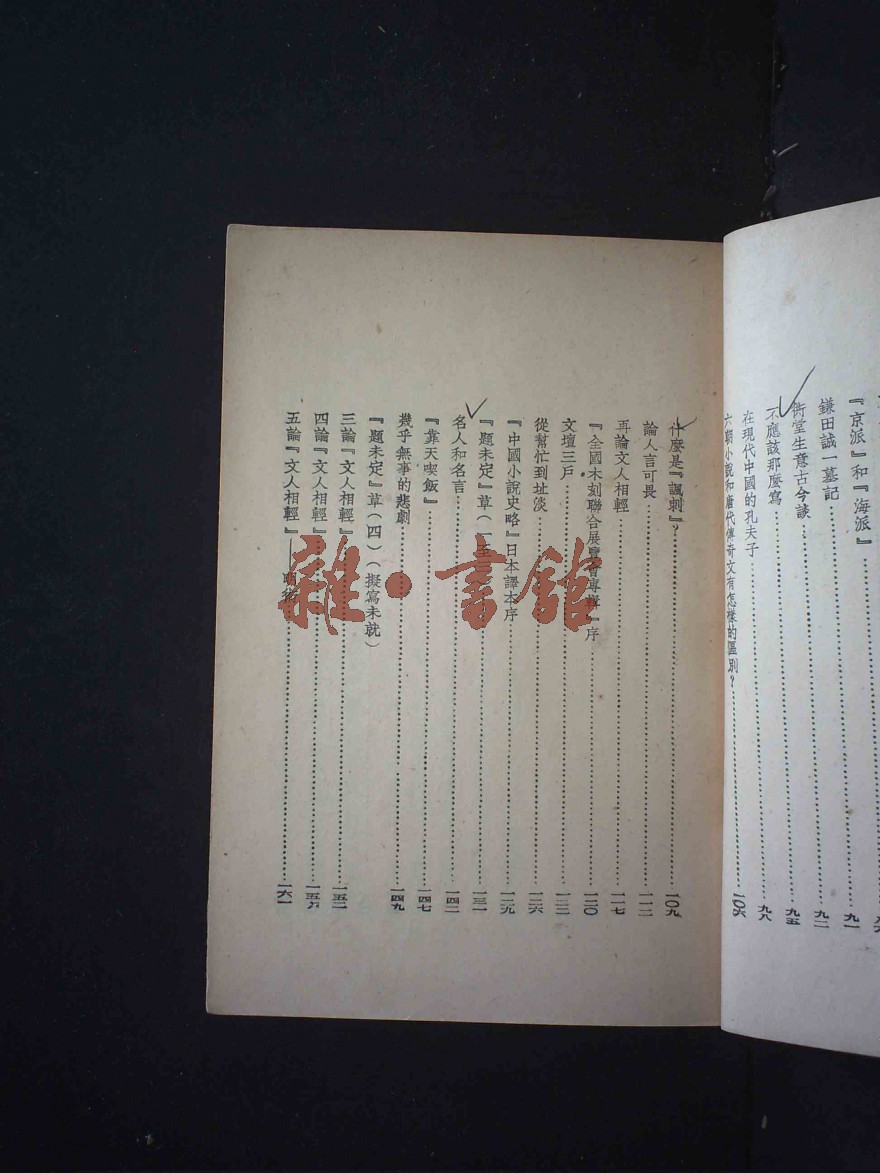 『京派』和『海派』……九一
鎌田誠一墓記……九二
衖堂生意古今談……九五
不應該那麼寫……九八
在現代中國的孔夫子
六朝小說和唐代傳奇文有怎樣的區別?……一〇六
什麼是『諷刺』?……一〇九
論人言可畏……一一二
再論文人相輕……一一七
『全國木刻聯合展覽會專輯』序……一二〇
文壇三戶……一二二
從幫忙到扯淡……一二六
『中國小說史略』日本譯本序……一二九
『題未定』草(一至三)……一三一
名人和名言……一四二
『靠天喫飯』……一四七
幾乎無事的悲劇……一四九
『題未定』草(四)(擬寫未就)
三論『文人相輕』……一五二
四論『文人相輕』……一五八
五論『文人相輕』——明術……一六一
雜·書館